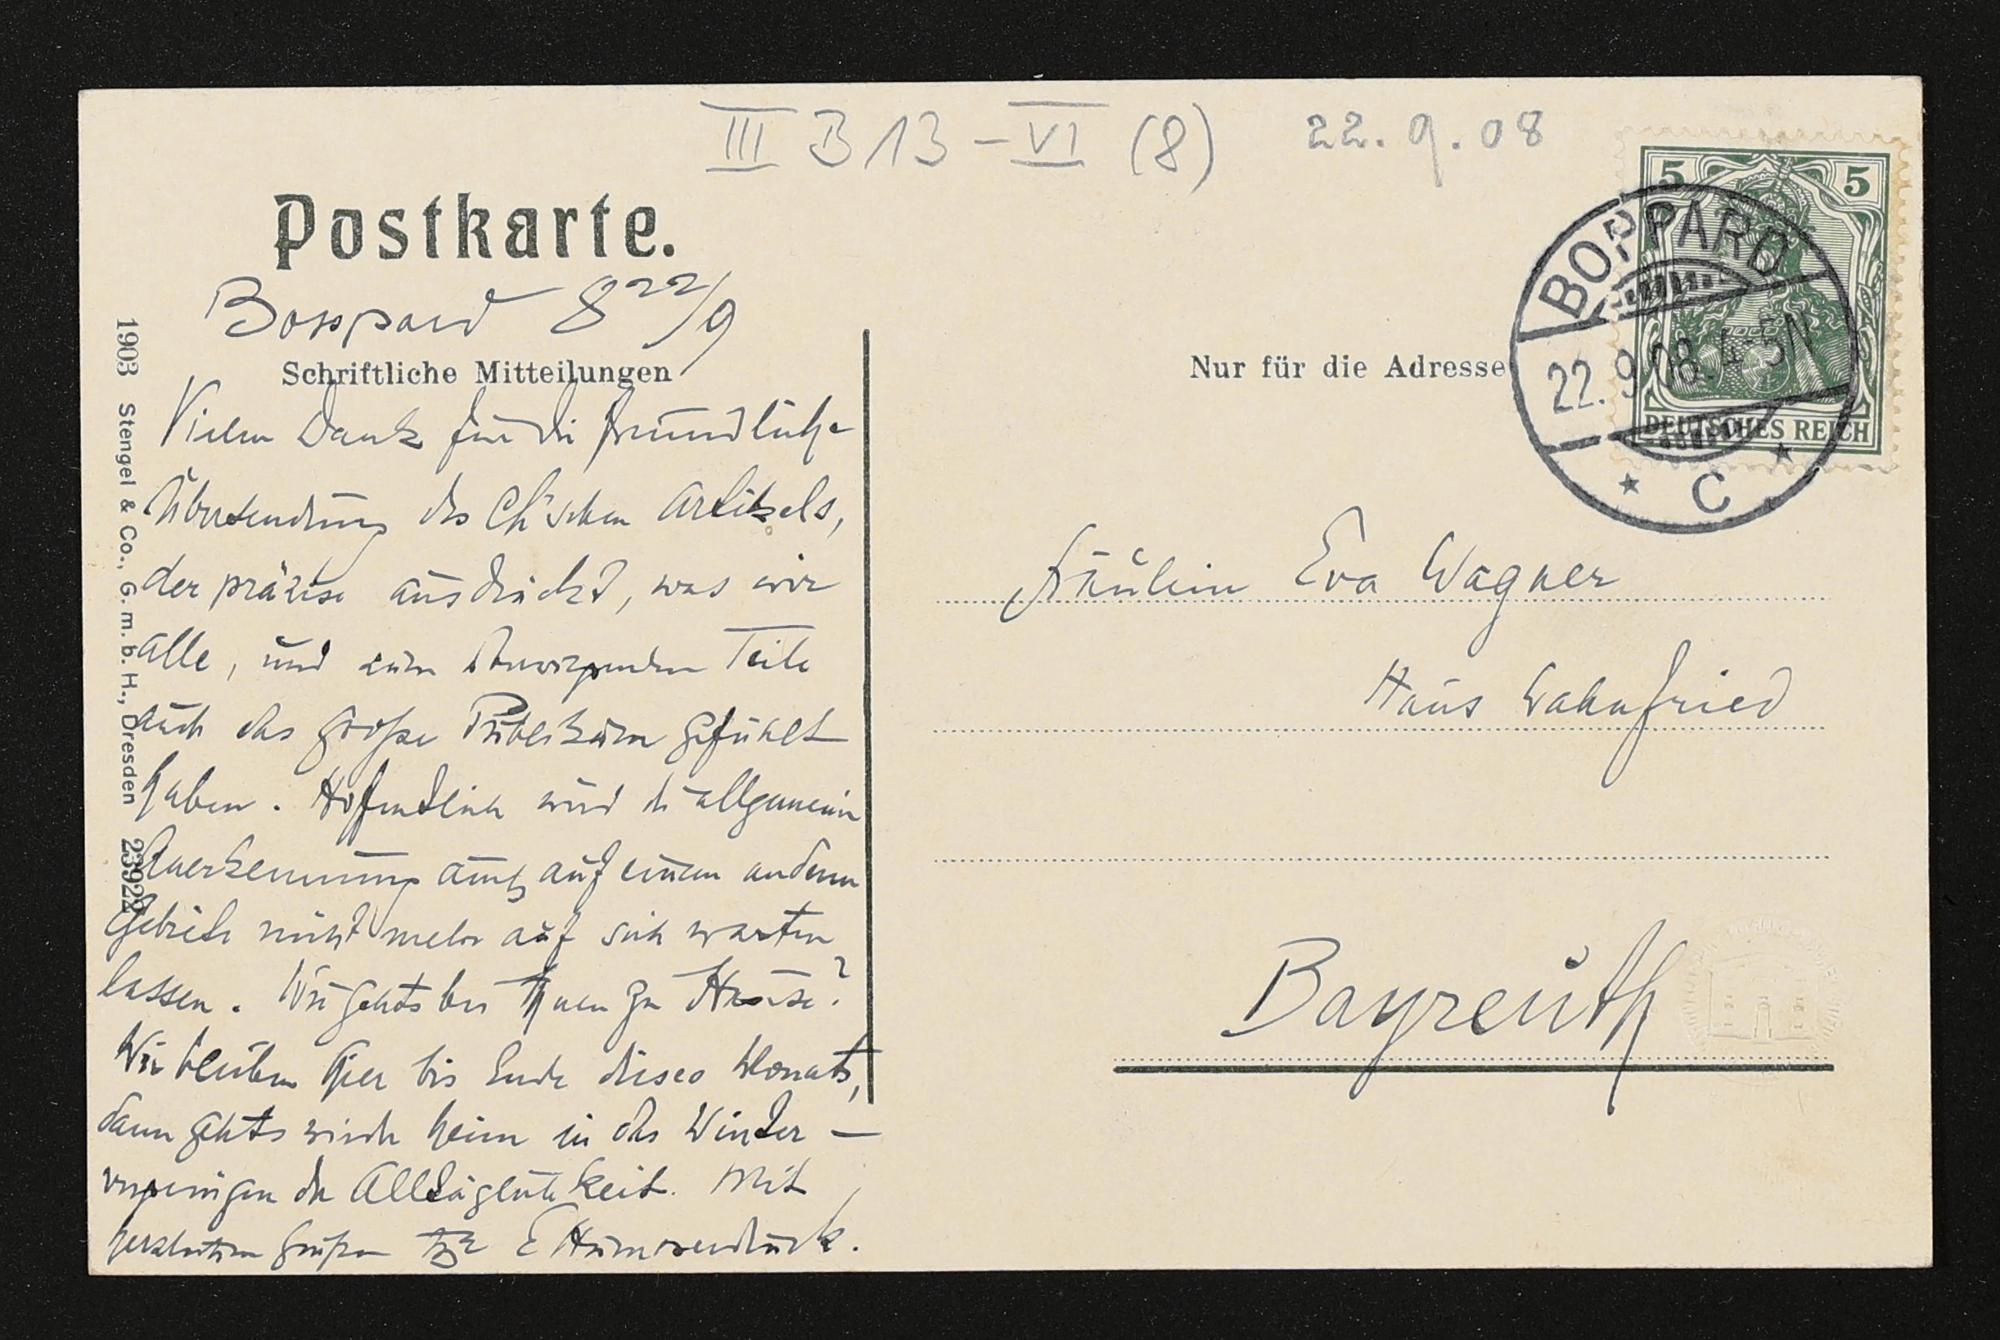 III B 13 - VI (8) 22. 9. 08
Postkarte.
Boppard 8 22/9
Schriftliche Mitteilungen
Vielen Dank für die freundliche
Übersendung des Ch'schen Artikels,
der präzise ausdrückt, was wir
alle, und zum überwiegenden Teile
auch das große Publikum gefühlt
haben. Hoffentlich wird die allgemeine
Anerkennung auch auf einem anderen
Gebiete nicht mehr auf sich warten
lassen. Wie gehts bei Ihnen zu Hause?
Wir bleiben hier bis Ende dieses Monats,
dann gehts wieder heim in das Winter-
vergnügen der Alltäglichkeit. Mit
herzlichen Grüßen E Humperdinck.
1903 Stengel & Co., G. m. b. H., Dresden 23922
Nur für die Adresse
5 5
DEUTSCHES REICH
BOPPARD
22. 9. 08. 4-5N
* C *
Fräulein Eva Wagner
Haus Wahnfried
Bayreuth